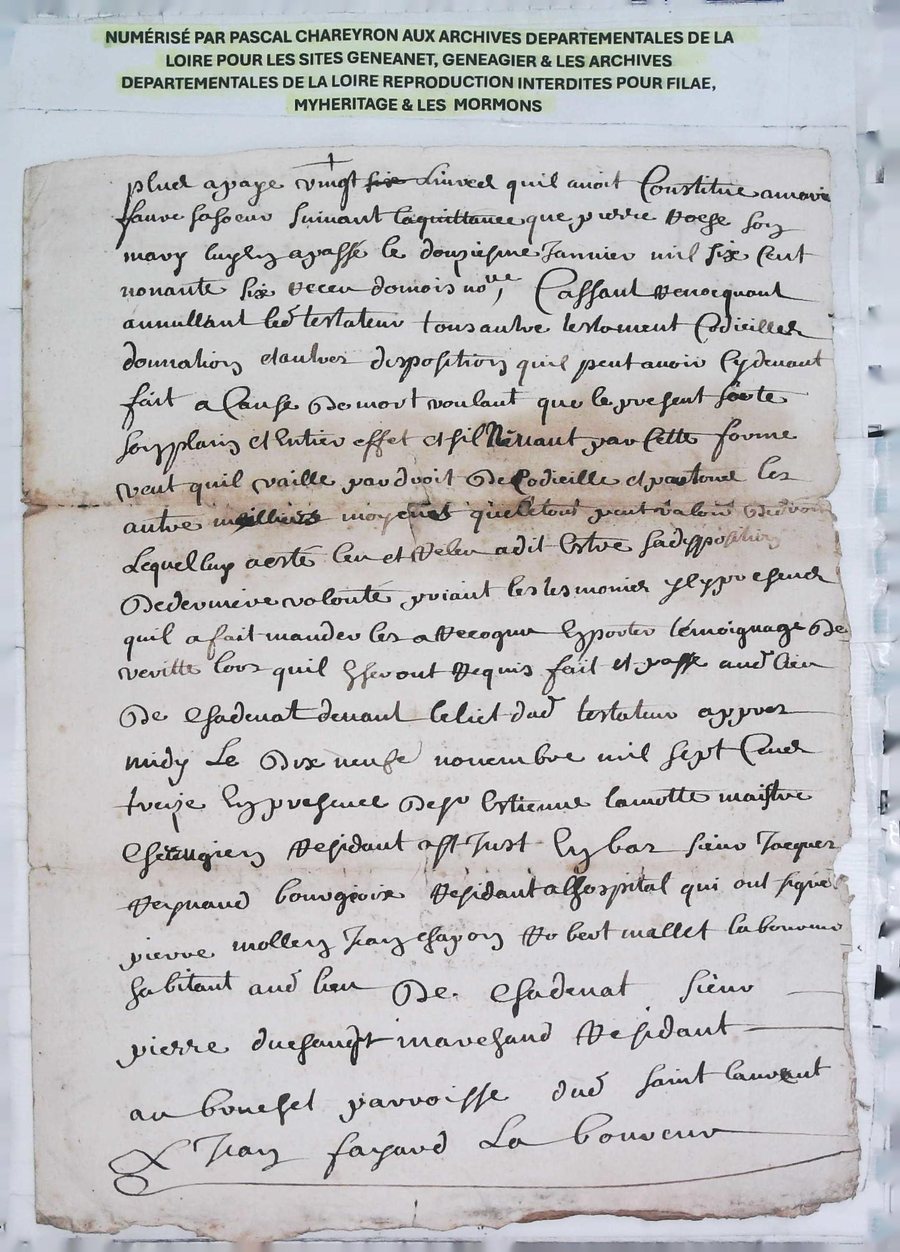 NUMÉRISÉ PAR PASCAL CHAREYRON AUX ARCHIVES DEPARTEMENTALES DE LA
LOIRE POUR LES SITES GENEANET, GENEAGIER & LES ARCHIVES
DEPARTEMENTALES DE LA LOIRE REPRODUCTION INTERDITES POUR FILAE,
MYHERITAGE & LES MORMONS
plus a paye vingt six Livres quil avoit Constitue a marie
faure sa soeur suivant la quittance que pierre son
mary luy en a passé le douziesme Janvier mil six Cent
nonante six Receu Cassant Revocquant
annullant led testateur tous autre testament Codicilles
donnation et autres disposition quil peut avoir Cy devant
fait a Cause De mort voulant que le present sorte
son plain et Entier effet et sil par Cette forme
veut quil vaille par droit De Codicille et par tous les
autre meilleurs moyens
Lequel luy a esté leu et Releu a dit Estre sa disposition
De derniere volonté priant les tesmoins y presents
quil a fait mander les a Recognu En porter témoignage De
veritte lors quil En seront Requis fait et passé aud lieu
De Chadenat devant le lict dud testateur appres
midy Le Dix neufe novembre mil sept Cents
treize En presence De sr Estienne lamotte maistre
Chirugien Residant a St Just En bas sieur Jacques
Reynaud bourgeoix Residant a Lhospital qui ont signé
pierre mollen Jean chapon Robert mallet laboureur
habitant aud lieu De Chadenat sieur
pierre marchand Residant
au bouchet parroisse dud saint laurent
& Jean fayard La boureur